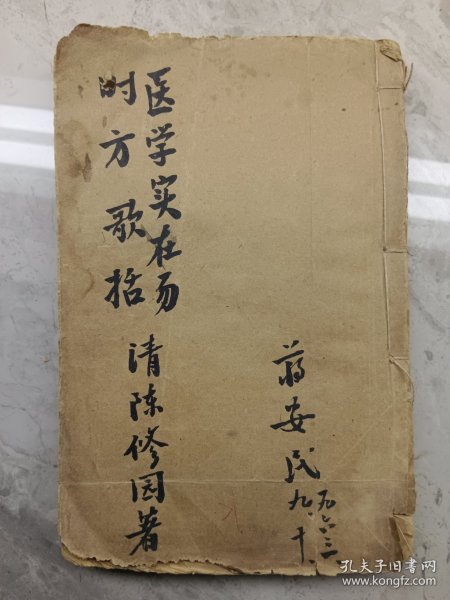 医学实在易
时方歌括
清陈修园著
蒋安民
九·十
孔夫子旧书网
www.kongfz.com